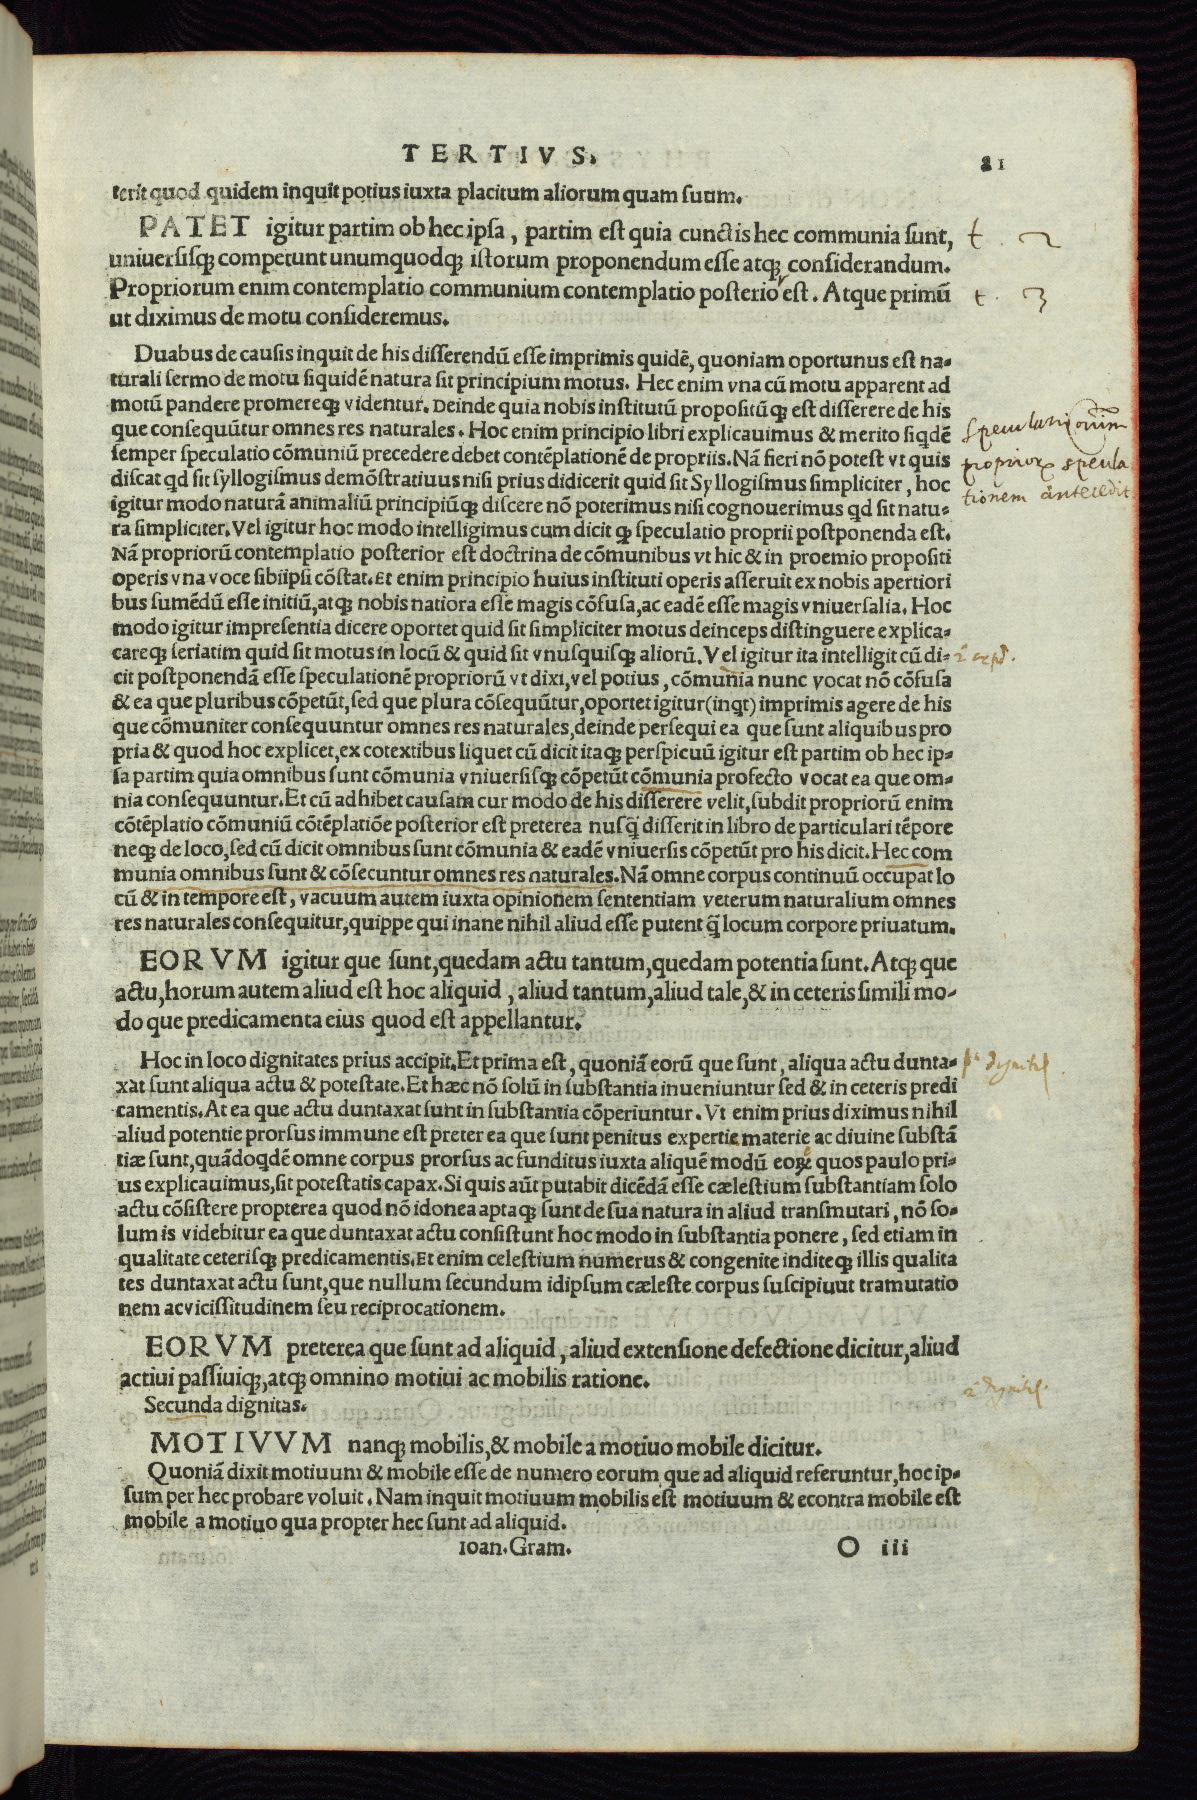 TERTIVS. 21
terit quod quidem inquit potius iuxta placitum aliorum quam suum.
PATET igitur partim ob hec ipsa, partim est quia cunctis hec communia sunt, t. 2
uniuersisqꝫ competunt unumquodqꝫ istorum proponendum esse atqꝫ considerandum.
Propriorum enim contemplatio communium contemplatio posterio r est. Atque primũ t. 3
ut diximus de motu consideremus.
Duabus de causis inquit de his disserendũ esse imprimis quidẽ, quoniam oportunus est na-
turali sermo de motu siquidẽ natura sit principium motus. Hec enim vna cũ motu apparent ad
motũ pandere promereqꝫ videntur. Deinde quia nobis institutũ propositũqꝫ est disserere de his
que consequũtur omnes res naturales. Hoc enim principio libri explicauimus & merito siqdẽ
semper speculatio cõmuniũ precedere debet contẽplationẽ de propriis. Nã fieri nõ potest vt quis
discat qd sit syllogismus demõstratiuus nisi prius didicerit quid sit Syllogismus simpliciter, hoc
igitur modo naturã animaliũ principiũqꝫ discere nõ poterimus nisi cognouerimus qd sit natu-
ra simpliciter. Vel igitur hoc modo intelligimus cum dicit qꝫ speculatio proprii postponenda est.
speculatio
propriorꝝ specula
tionem antecedit
Nã propriorũ contemplatio posterior est doctrina de cõmunibus vt hic & in proemio propositi
operis vna voce sibiipsi cõstat. Et enim principio huius instituti operis asseruit ex nobis apertiori
bus sumẽdũ esse initiũ, atqꝫ nobis natiora esse magis cõfusa, ac eadẽ esse magis vniuersalia. Hoc
modo igitur impresentia dicere oportet quid sit simpliciter motus deinceps distinguere explica-
careqꝫ seriatim quid sit motus in locũ & quid sit vnusquisqꝫ aliorũ. Vel igitur ita intelligit cũ di- 2ª exp.
cit postponendã esse speculationẽ propriorũ vt dixi, vel potius, cõmunia nunc vocat nõ cõfusa
& ea que pluribus cõpetũt, sed que plura cõsequũtur, oportet igitur (inqt) imprimis agere de his
que cõmuniter consequuntur omnes res naturales, deinde persequi ea que sunt aliquibus pro
pria & quod hoc explicet, ex cotextibus liquet cũ dicit itaqꝫ perspicuũ igitur est partim ob hec ip-
sa partim quia omnibus sunt cõmunia vniuersisqꝫ cõpetũt cõmunia profecto vocat ea que om-
nia consequuntur. Et cũ adhibet causam cur modo de his disserere velit, subdit propriorũ enim
cõtẽplatio cõmuniũ cõtẽplatiõe posterior est preterea nusq̃ disserit in libro de particulari tẽpore
neqꝫ de loco, sed cũ dicit omnibus sunt cõmunia & eadẽ vniuersis cõpetũt pro his dicit. Hec com
munia omnibus sunt & cõsecuntur omnes res naturales. Nã omne corpus continuũ occupat lo
cũ & in tempore est, vacuum autem iuxta opinionem sententiam veterum naturalium omnes
res naturales consequitur, quippe qui inane nihil aliud esse putent q̃ locum corpore priuatum.
EORVM igitur que sunt, quedam actu tantum, quedam potentia sunt. Atqꝫ que
actu, horum autem aliud est hoc aliquid, aliud tantum, aliud tale, & in ceteris simili mo-
do que predicamenta eius quod est appellantur.
Hoc in loco dignitates prius accipit. Et prima est, quoniã eorũ que sunt, aliqua actu dunta-
xat sunt aliqua actu & potestate. Et hæc nõ solũ in substantia inueniuntur sed & in ceteris predi
camentis. At ea que actu duntaxat sunt in substantia cõperiuntur. Vt enim prius diximus nihil
aliud potentie prorsus immune est preter ea que sunt penitus expertie materie ac diuine substã
tiæ sunt, quãdoqdẽ omne corpus prorsus ac funditus iuxta aliquẽ modũ eoꝝ quos paulo pri-
us explicauimus, sit potestatis capax. Si quis aũt putabit dicẽdã esse cælestium substantiam solo
actu cõsistere propterea quod nõ idonea aptaqꝫ sunt de sua natura in aliud transmutari, nõ so-
lum is videbitur ea que duntaxat actu consistunt hoc modo in substantia ponere, sed etiam in
qualitate ceterisqꝫ predicamentis. Et enim celestium numerus & congenite inditeqꝫ illis qualita
tes duntaxat actu sunt, que nullum secundum idipsum cæleste corpus suscipiuut tramutatio
nem acvicissitudinem seu reciprocationem.
EORVM preterea que sunt ad aliquid, aliud extensione defectione dicitur, aliud
actiui passiuiqꝫ, atqꝫ omnino motiui ac mobilis ratione.
Secunda dignitas.
MOTIVVM nanqꝫ mobilis, & mobile a motiuo mobile dicitur.
Quoniã dixit motiuum & mobile esse de numero eorum que ad aliquid referuntur, hoc ip-
sum per hec probare voluit. Nam inquit motiuum mobilis est motiuum & econtra mobile est
mobile a motiuo qua propter hec sunt ad aliquid.
Ioan. Gram. O iii